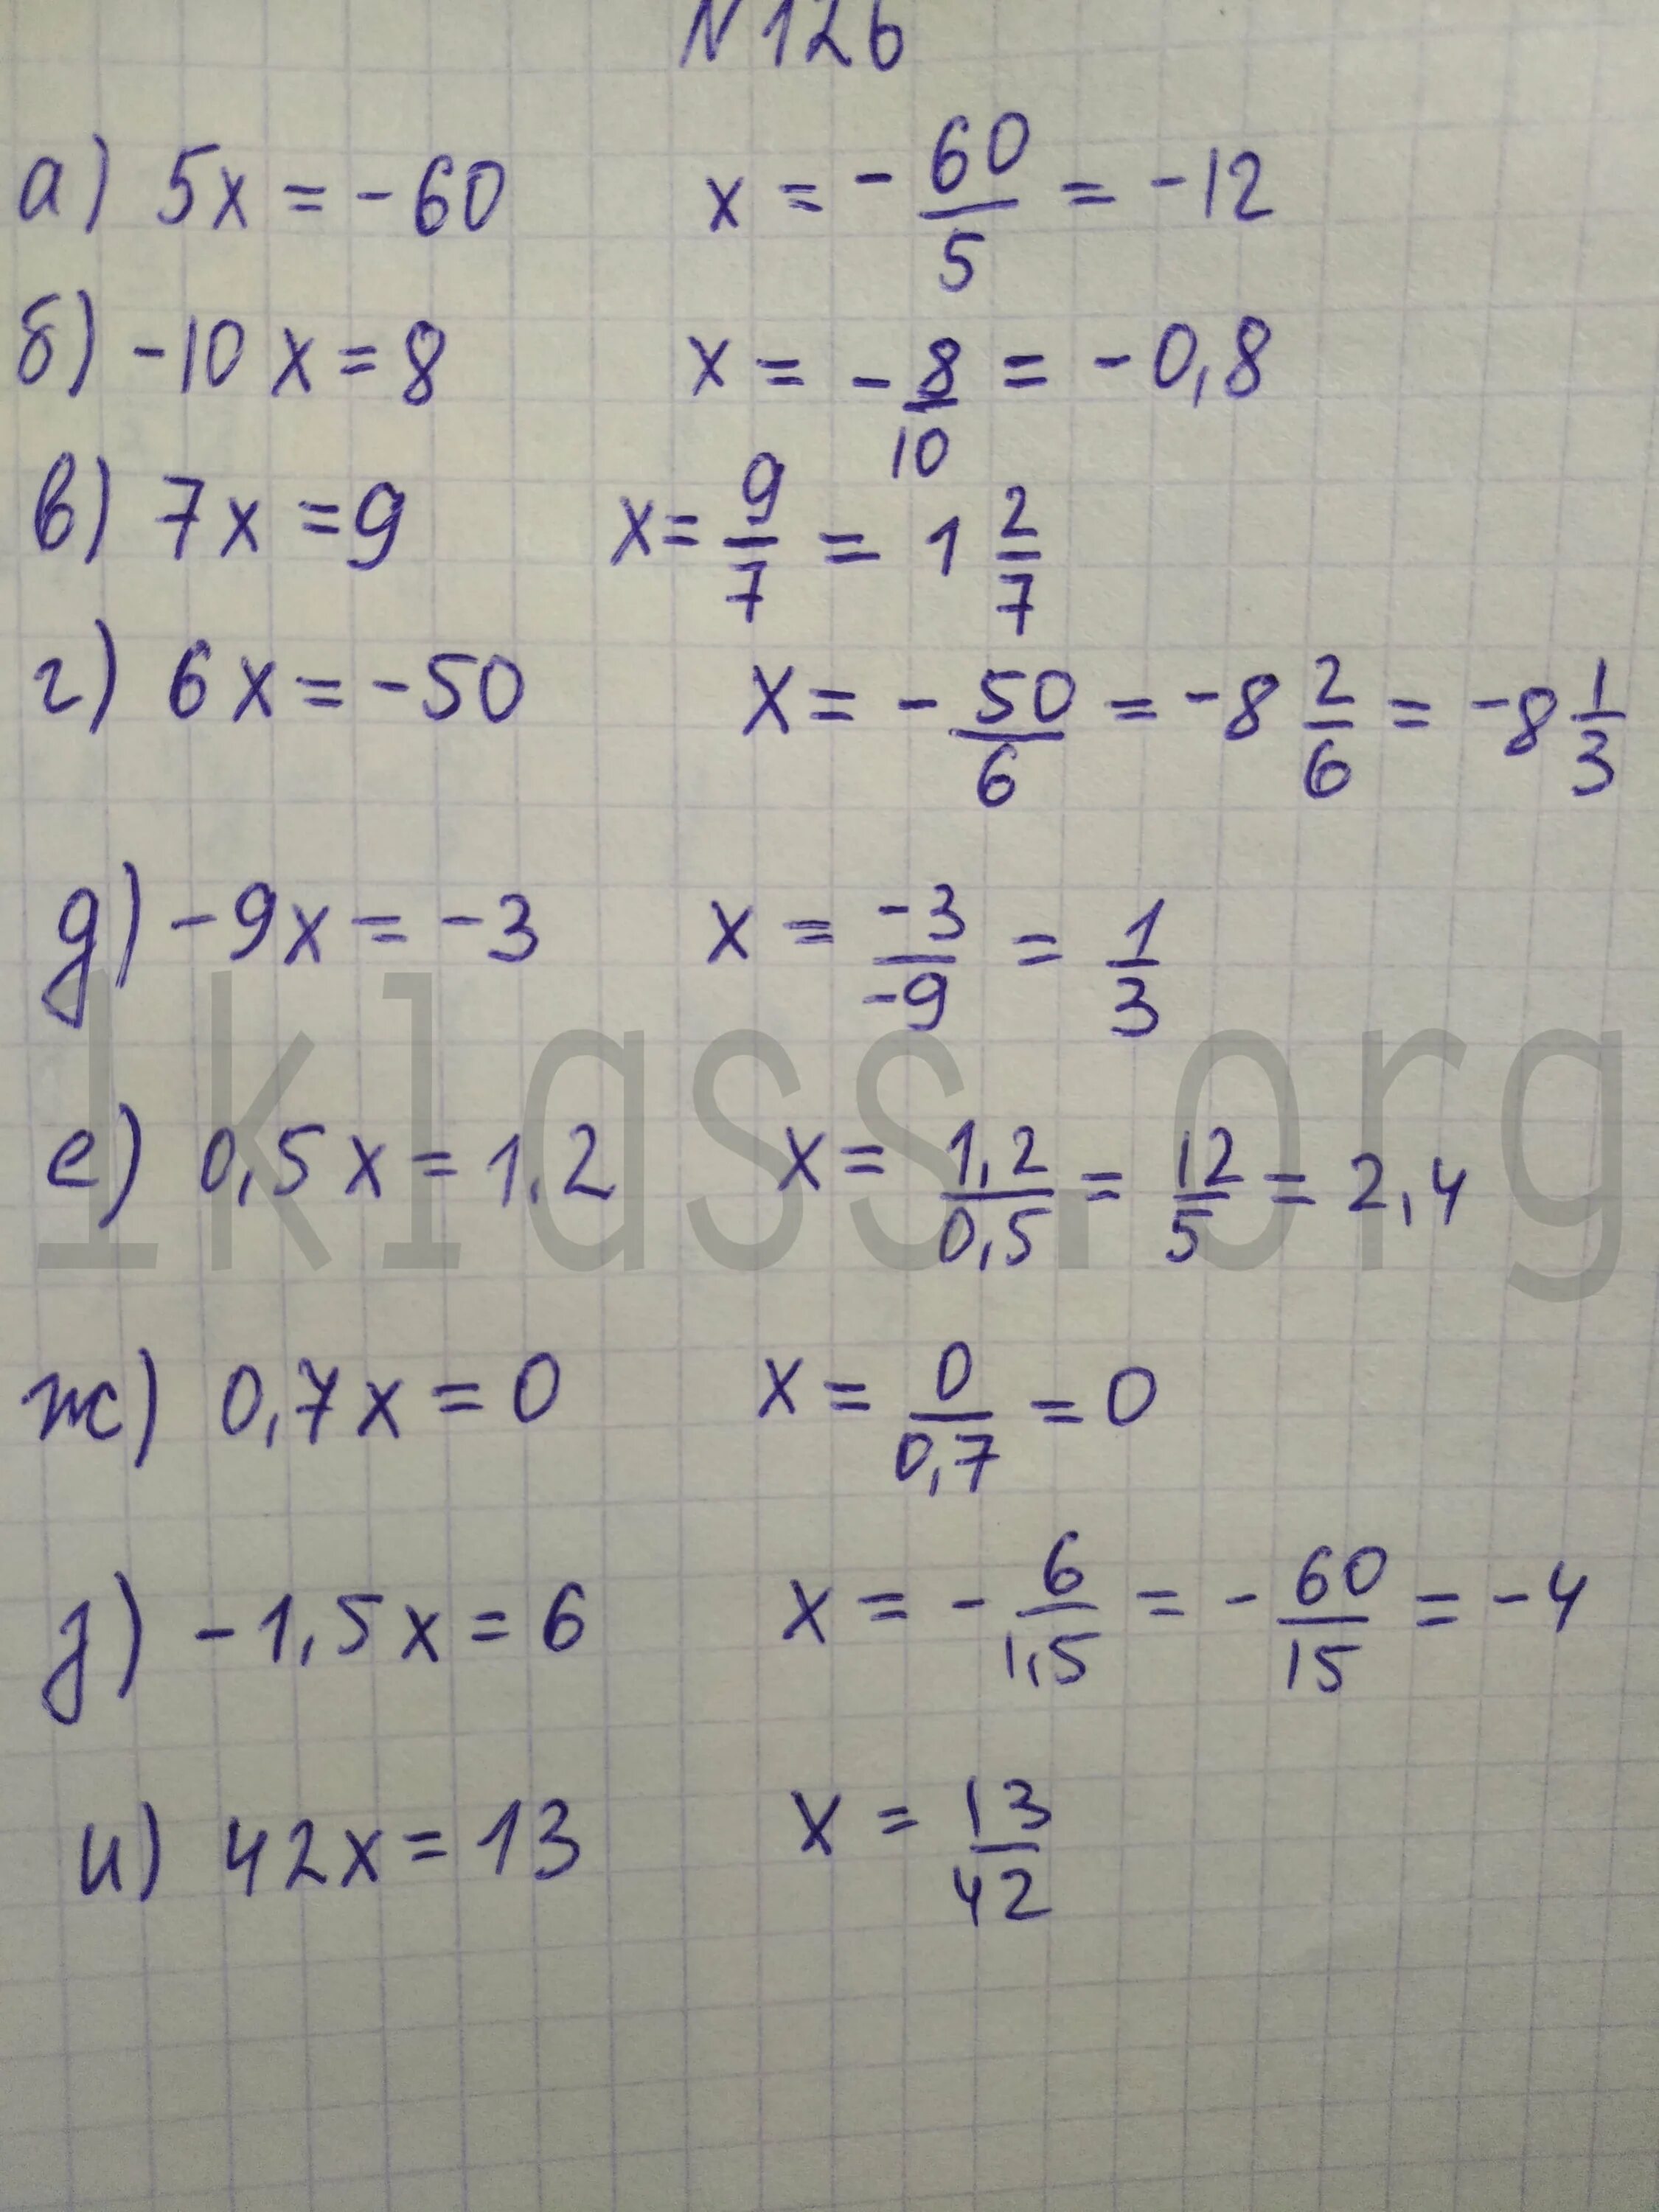 N 126
а) 5x = -60 x = - 60/5 = -12
б) -10 x = 8 x = - 8/10 = -0,8
в) 7x = 9 x = 9/7 = 1 2/7
г) 6x = -50 x = - 50/6 = -8 2/6 = -8 1/3
д) -9x = -3 x = -3/-9 = 1/3
1klass.org
е) 0,5x = 1,2 x = 1,2/0,5 = 12/5 = 2,4
ж) 0,7x = 0 x = 0/0,7 = 0
з) -1,5x = 6 x = - 6/1,5 = - 60/15 = -4
и) 42x = 13 x = 13/42